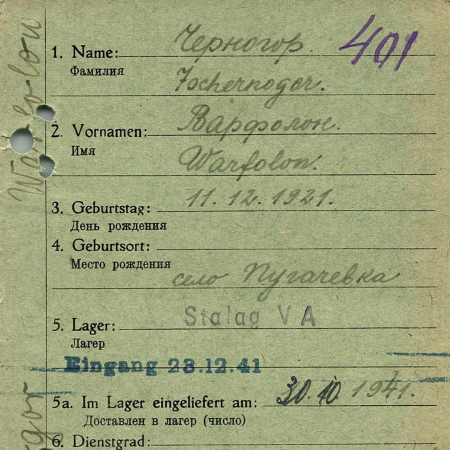 1. Name: Черногор.
401
Фамилия
Tschernogor.
2. Vornamen: Варфолон.
Имя
Warfolon.
3. Geburtstag: 11. 12. 1921.
День рождения
4. Geburtsort:
Место рождения село Пугачевка
5. Lager: Stalag VA
Лагер
Eingang 23.12.41
5a. Im Lager eingeliefert am: 30.10 1941.
Доставлен в лагер (число)
6. Dienstgrad: